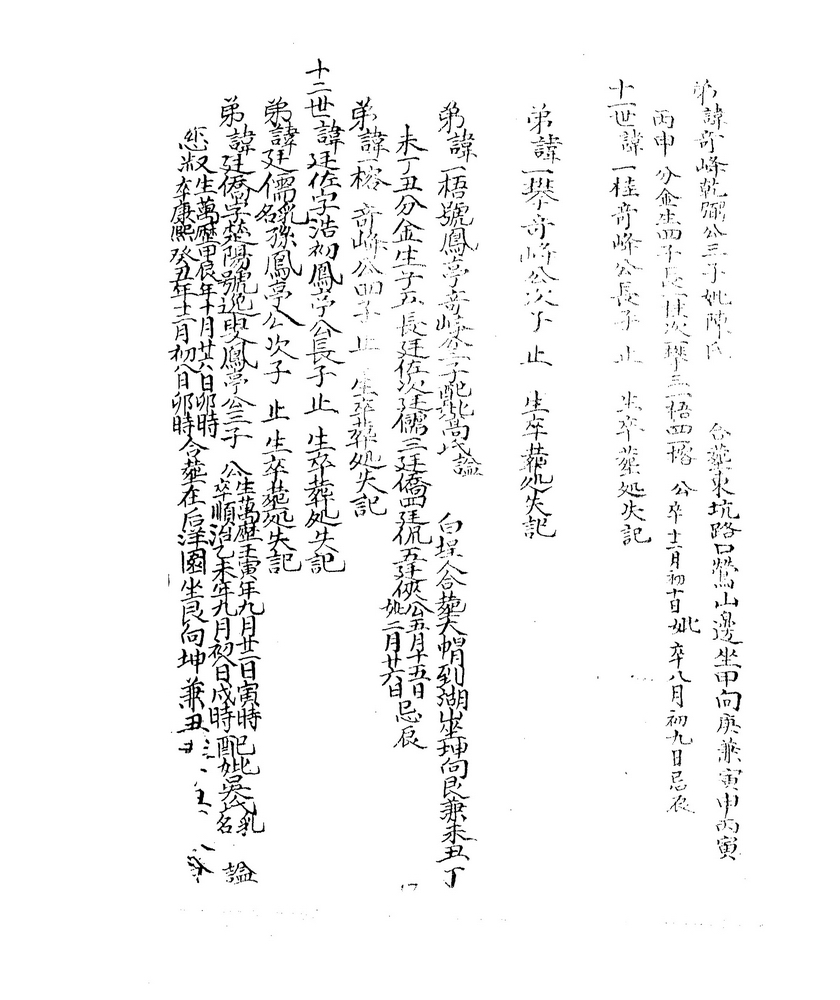 弟諱奇峰乾弼公三子妣陳氏 合葬東坑路口鶯山邊坐甲向庚兼寅申丙寅
丙申分金生四子長一桂次一攀三一梧四一榕 公卒十二月初十日妣卒八月初九日忌辰
十一世諱一桂奇峰公長子 止 生卒葬処失記
弟諱一攀奇峰公次子 止 生卒葬処失記
弟諱一梧號鳳亭奇峰公三子配妣高氏謚 白埕人合葬大帽到湖坐坤向艮兼未丑丁
未丁丑分金生子五長廷佐次廷儒三廷僑四廷侃五廷俠公五月十五日妣二月廿六日忌辰
弟諱一榕 奇峰公四子 止 生卒葬処失記
十二世諱廷佐字浩初鳳亭公長子 止 生卒葬処失記
弟諱廷儒乳名孫鳳亭公次子 止 生卒葬処失記
弟諱廷僑字楚陽號逸叟鳳亭公三子 公生萬歷壬寅年九月廿一日寅時卒順治乙未年九月初八日戌時配妣吳氏乳名 謚
慈淑生萬歷甲辰年十月廿六日卯時卒康熙癸丑年十二月初八日卯時合葬在后洋園坐艮向坤兼丑
17